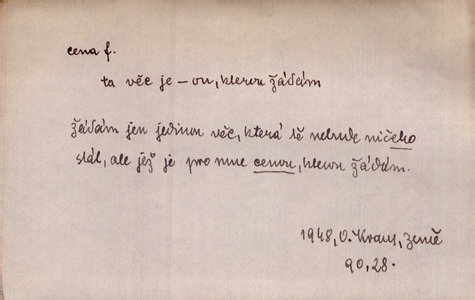 cena f.
ta věc je – ou, kterou žádám
žádám jen jedinou věc, která tě nebude ničeho
stát, ale jež je pro mne cenou, kterou žádám.
1948, O. Kraus, Země
90, 28.